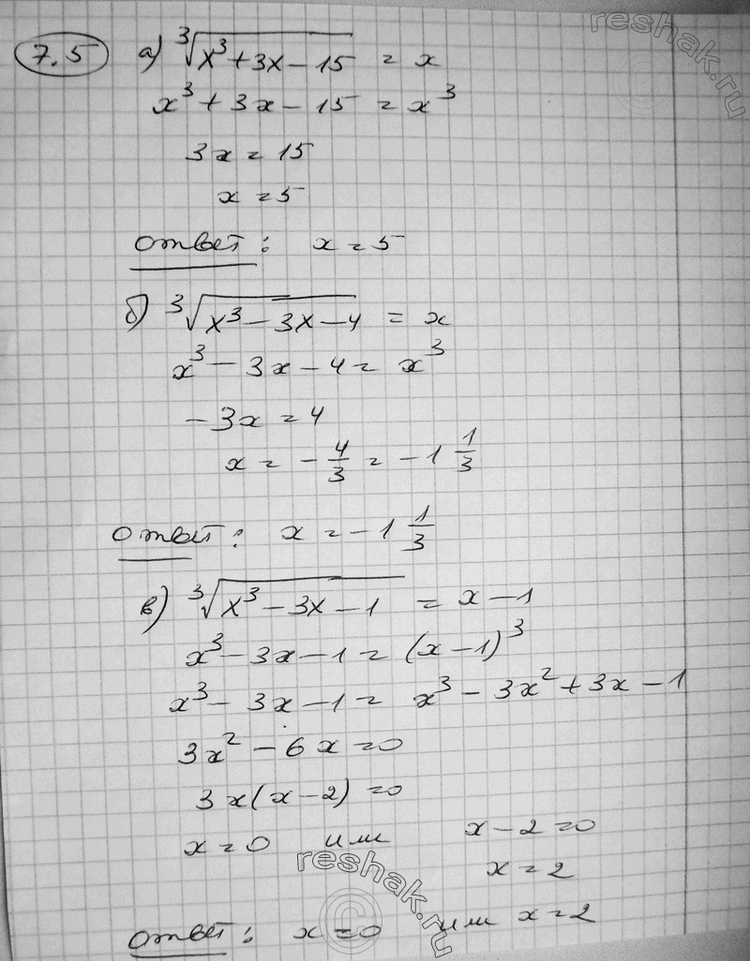 reshak.ru
7.5 а) ∛(x³ + 3x − 15) = x
x³ + 3x − 15 = x³
3x = 15
x = 5
Ответ: x = 5
б) ∛(x³ − 3x − 4) = x
x³ − 3x − 4 = x³
−3x = 4
x = −4/3 = −1 1/3
Ответ: x = −1 1/3
в) ∛(x³ − 3x − 1) = x − 1
x³ − 3x − 1 = (x − 1)³
x³ − 3x − 1 = x³ − 3x² + 3x − 1
3x² − 6x = 0
3x(x − 2) = 0
x = 0 или x − 2 = 0
x = 2
reshak.ru
©
Ответ: x = 0 или x = 2